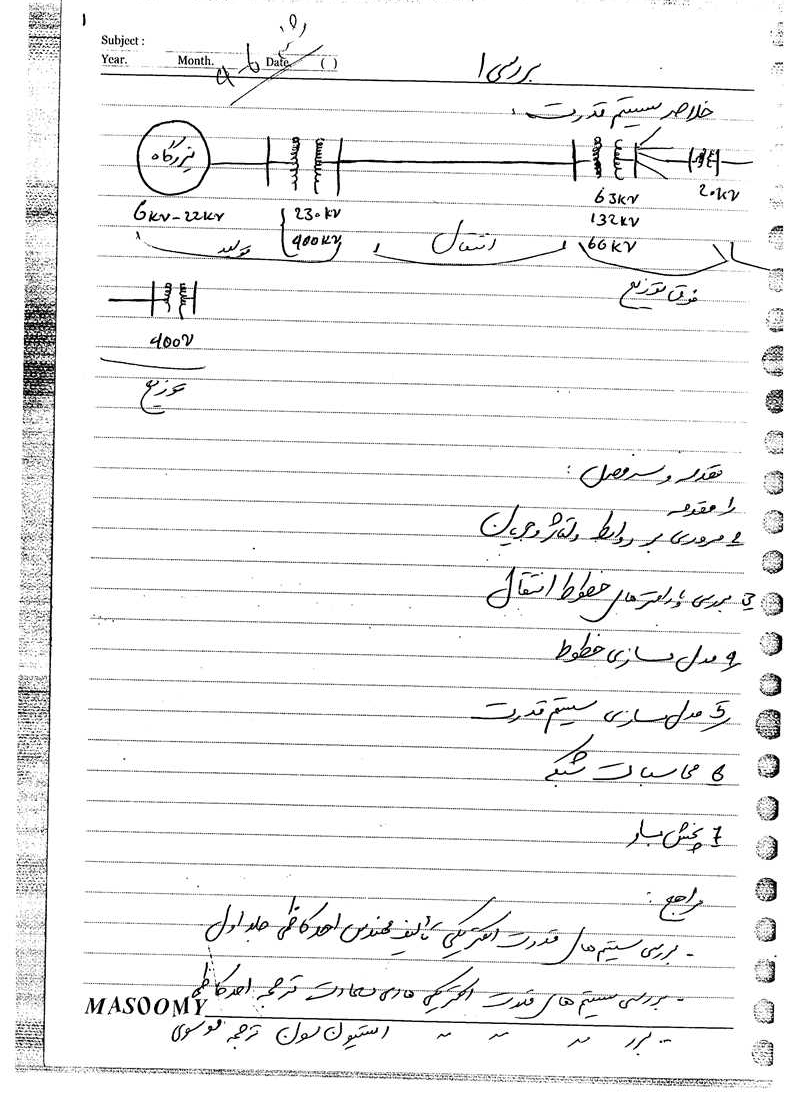 1
Subject :
Year. Month. Date. ( )
بررسی 1
خلاصه سیستم قدرت :
نیروگاه
6kv-22kv
230kv
400kv
63kv
132kv
66kv
20kv
تولید
انتقال
فوق توزیع
400v
توزیع
مقدمه و سرفصل :
1 مقدمه
2 مروری بر روابط ولتاژ و جریان
3 بررسی پارامترهای خطوط انتقال
4 مدل سازی خطوط
5 مدل سازی سیستم قدرت
6 محاسبات شبکه
7 پخش بار
مراجع :
- بررسی سیستم های قدرت الکتریکی تألیف مهندس احد کاظمی جلد اول
- بررسی سیستم های قدرت الکتریکی هادی سعادت ترجمه احد کاظمی
- بررسی " " " استیونسون ترجمه موسوی
MASOOMY